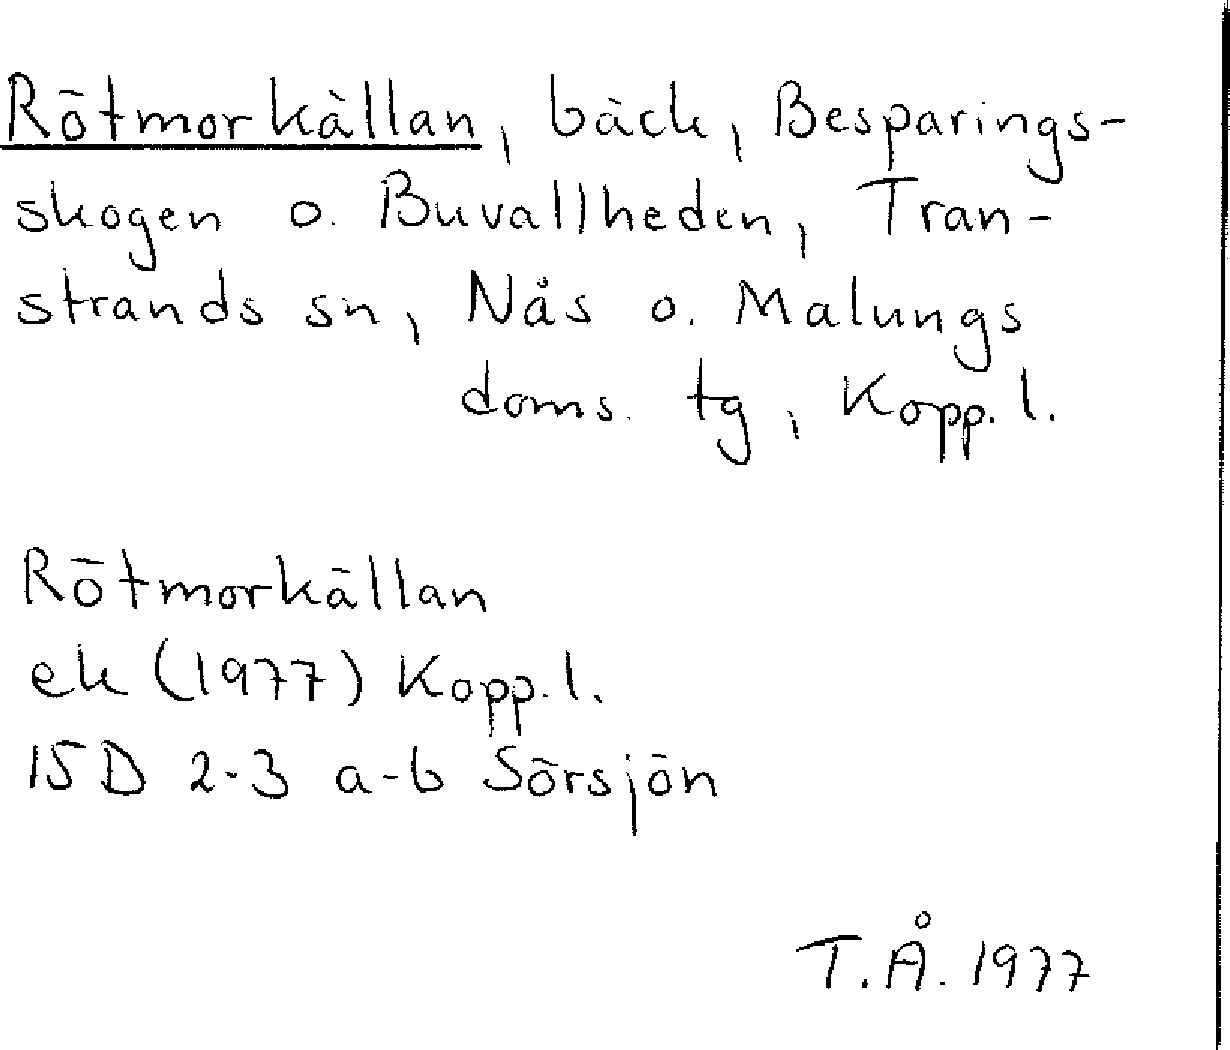 Rötmorkällan, bäck, Besparings-
skogen o. Buvallheden, Tran-
strands sn, Nås o. Malungs
doms. tg, Kopp. l.
Rötmorkällan
ek (1977) Kopp. l.
15D 2-3 a-b Sörsjön
T.Å. 1977